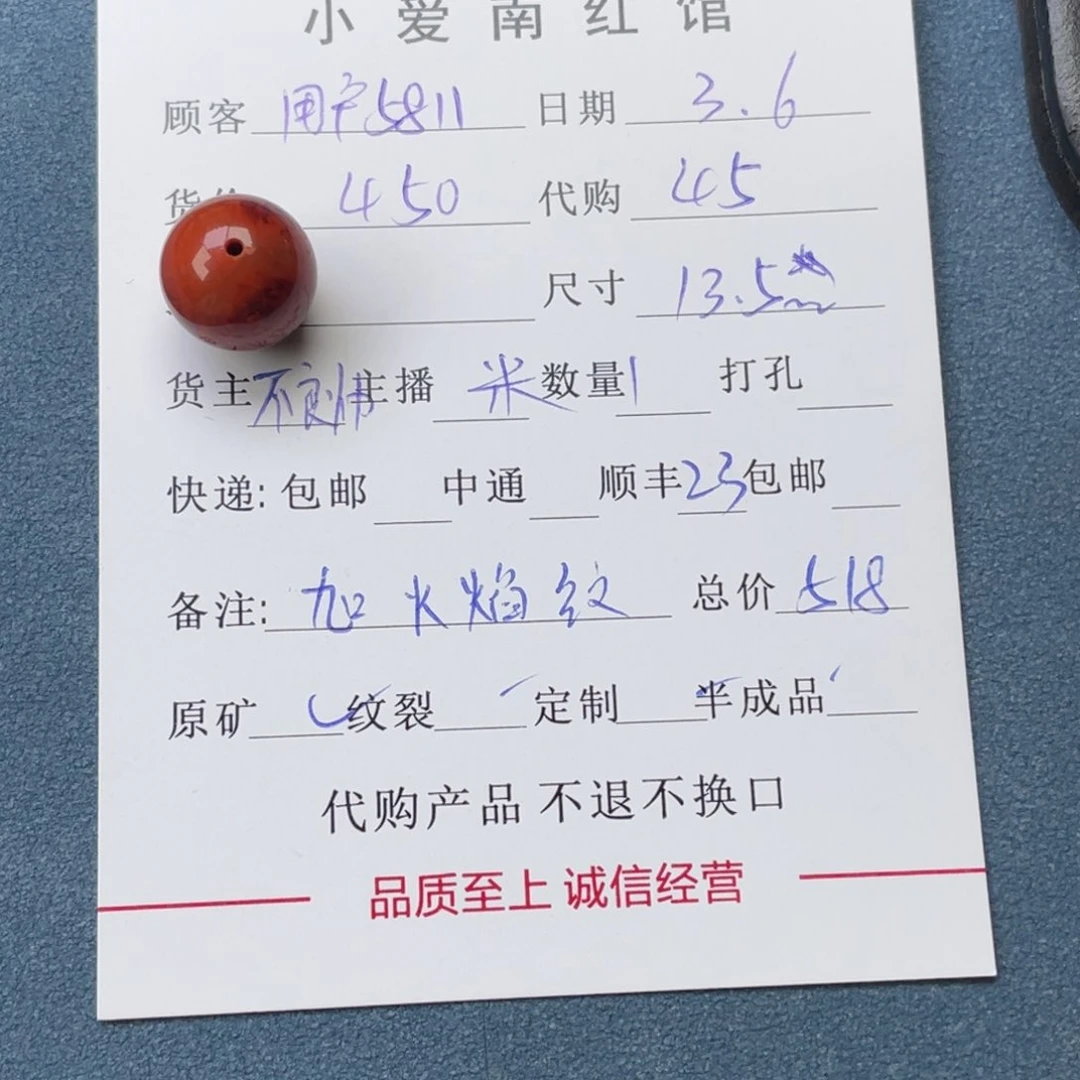 小爱南红馆
顾客 用户5811 日期 3.6
货价 450 代购 45
尺寸 13.5
货主 不良帅 主播 米 数量 1 打孔
快递: 包邮 中通 顺丰 23 包邮
备注: 加火焰纹 总价 518
原矿 纹裂 定制 半成品
代购产品 不退不换口
品质至上 诚信经营